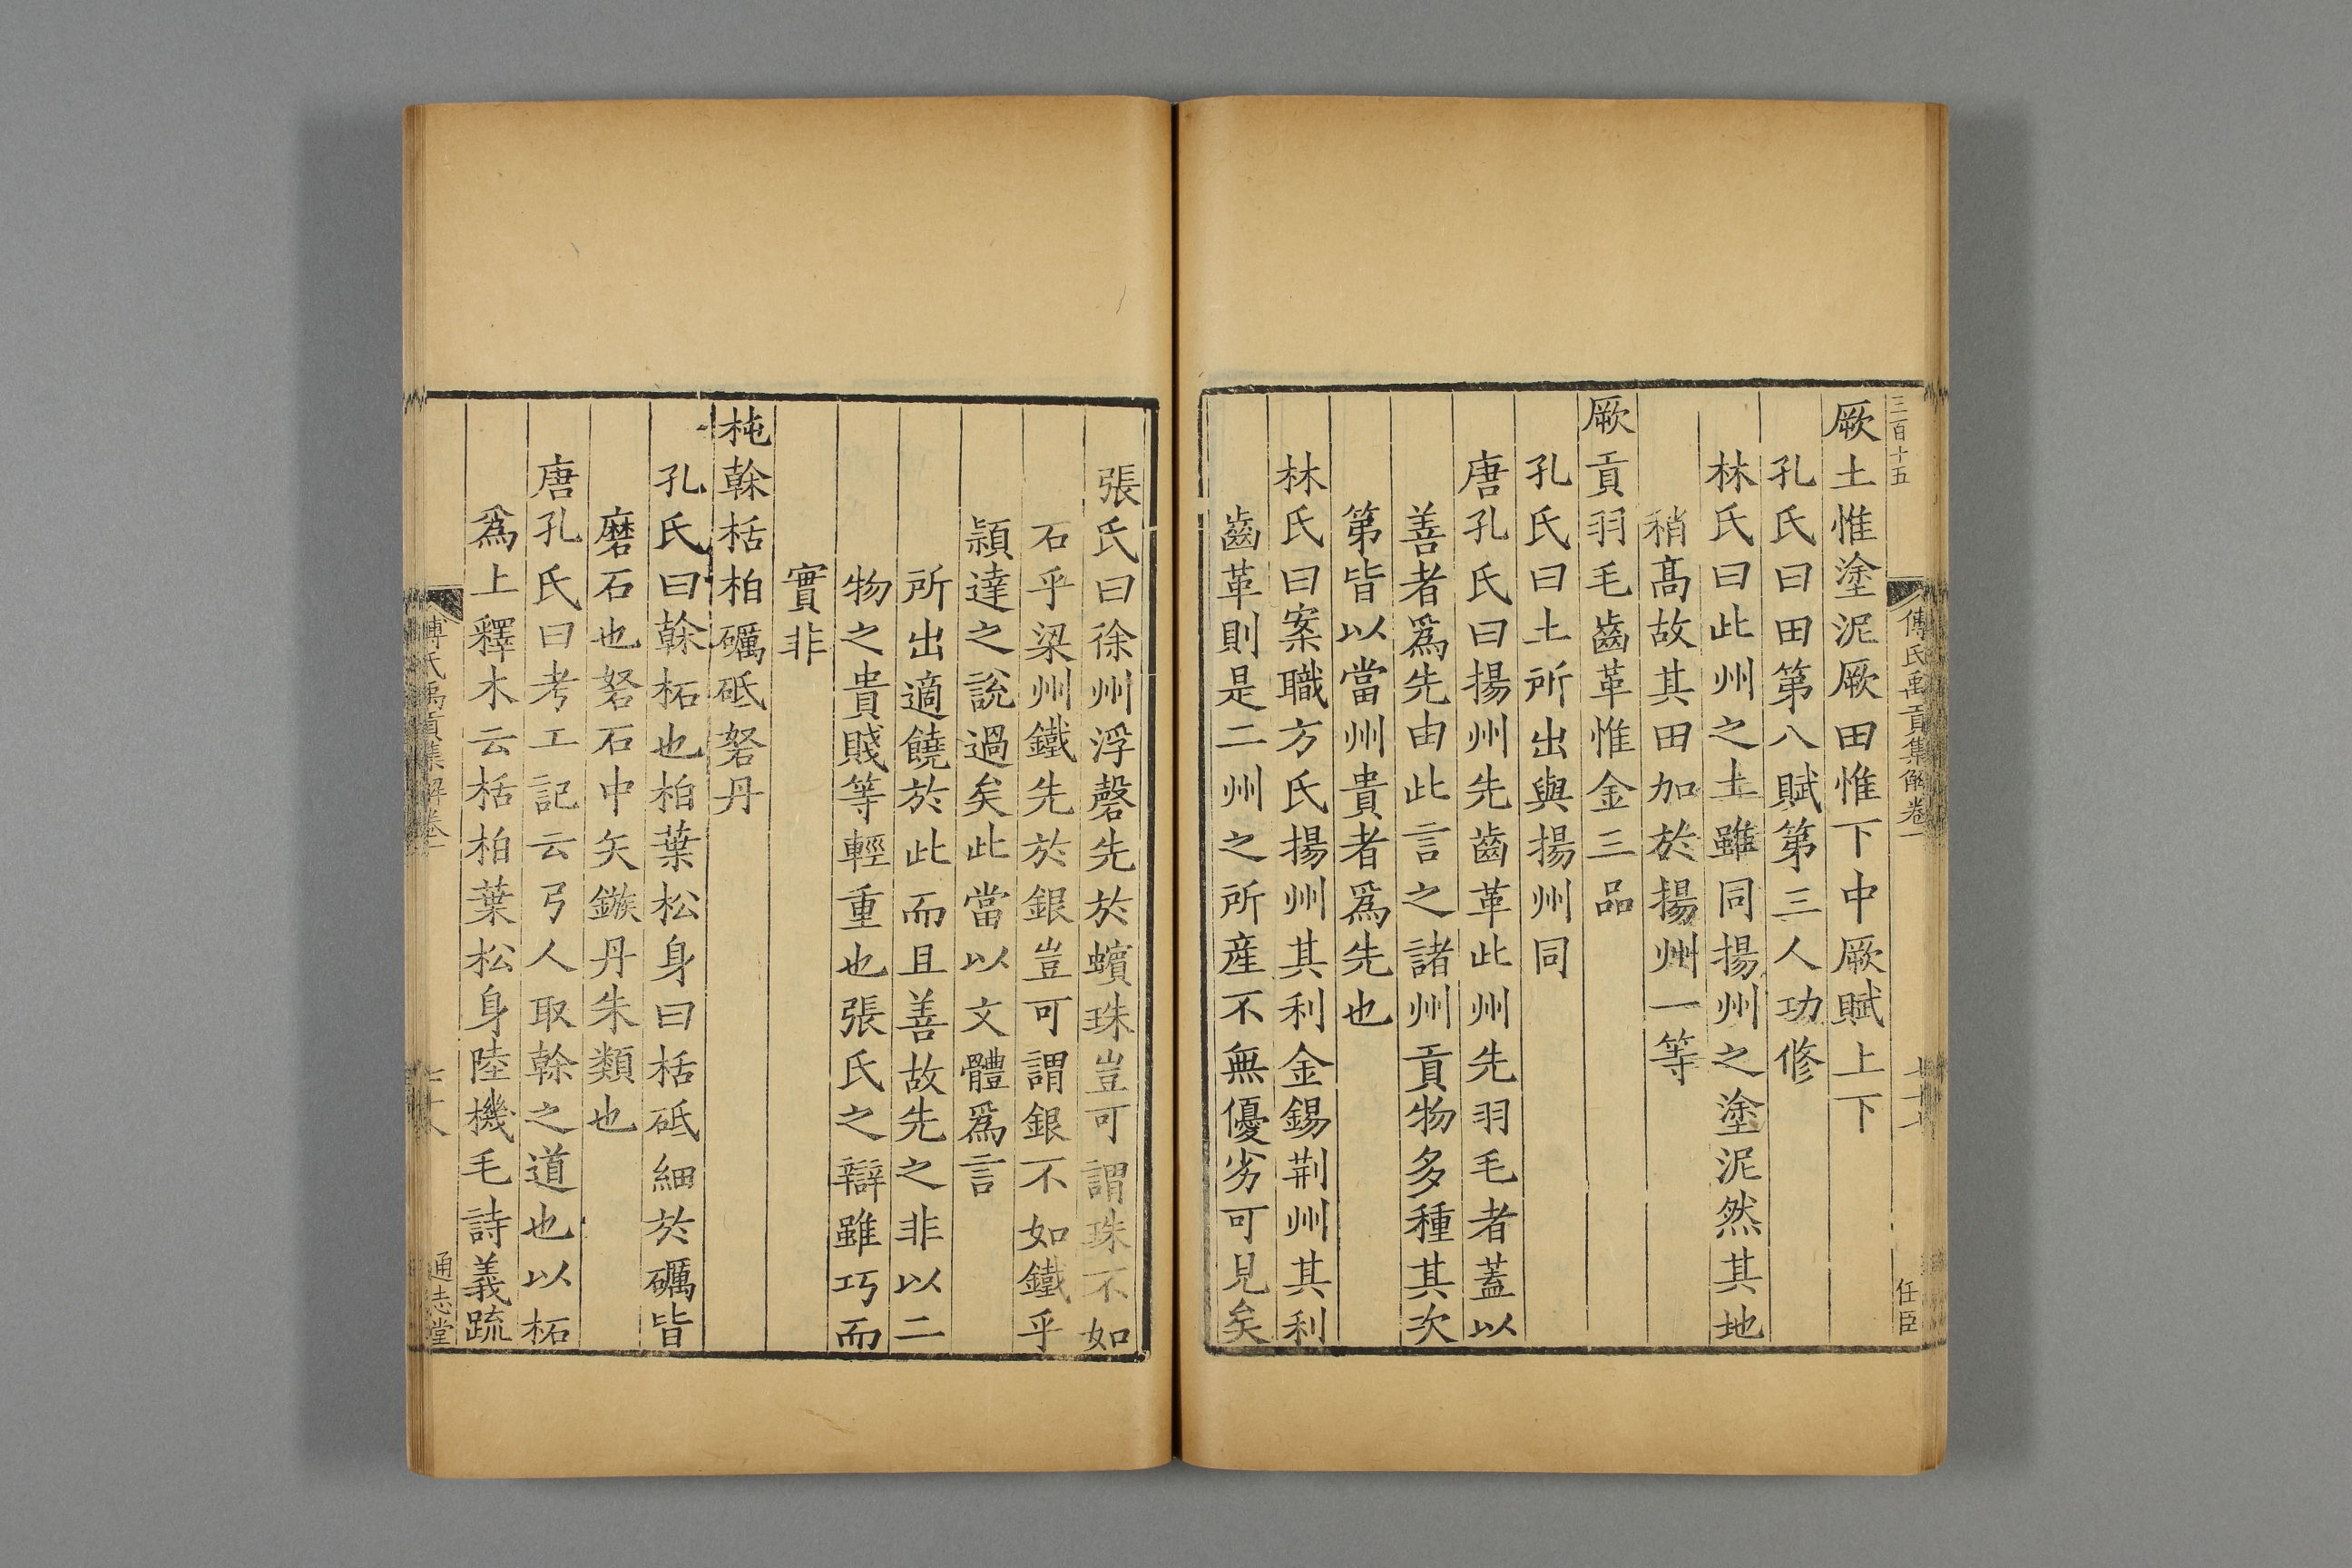 三百十五
傅氏禹貢集解卷一
任臣
厥土惟塗泥厥田惟下中厥賦上下
孔氏曰田第八賦第三人功修
林氏曰此州之土雖同揚州之塗泥然其地
稍髙故其田加於揚州一等
厥貢羽毛齒革惟金三品
孔氏曰土所出與揚州同
唐孔氏曰揚州先齒革此州先羽毛者蓋以
善者爲先由此言之諸州貢物多種其次
第皆以當州貴者爲先也
林氏曰案職方氏揚州其利金錫荆州其利
齒革則是二州之所産不無優劣可見矣
張氏曰徐州浮磬先於蠙珠豈可謂珠不如
石乎梁州鐵先於銀豈可謂銀不如鐵乎
頴達之說過矣此當以文體爲言
所出適饒於此而且善故先之非以二
物之貴賤等輕重也張氏之辯雖巧而
實非
杶榦栝柏礪砥砮丹
孔氏曰榦柘也柏葉松身曰栝砥細於礪皆
磨石也砮石中矢鏃丹朱類也
唐孔氏曰考工記云弓人取榦之道也以柘
爲上釋木云栝柏葉松身陸機毛詩義疏
傅氏禹貢集解卷一
通志堂